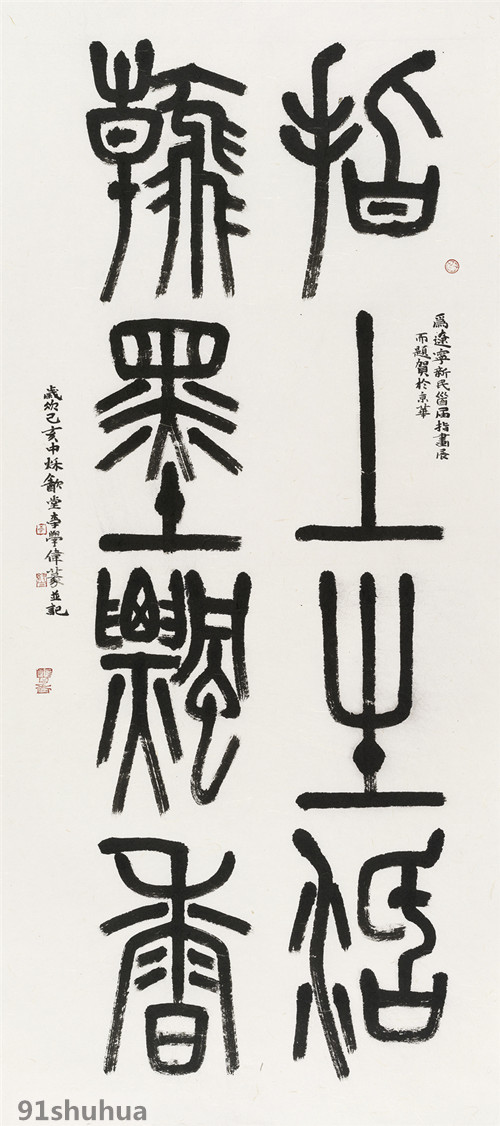 指上生活
爲遼寧新民首届指畫展
而題賀於京華
翰墨飄香
歲次己亥中秌歙堂李學偉篆並記
91shuhua